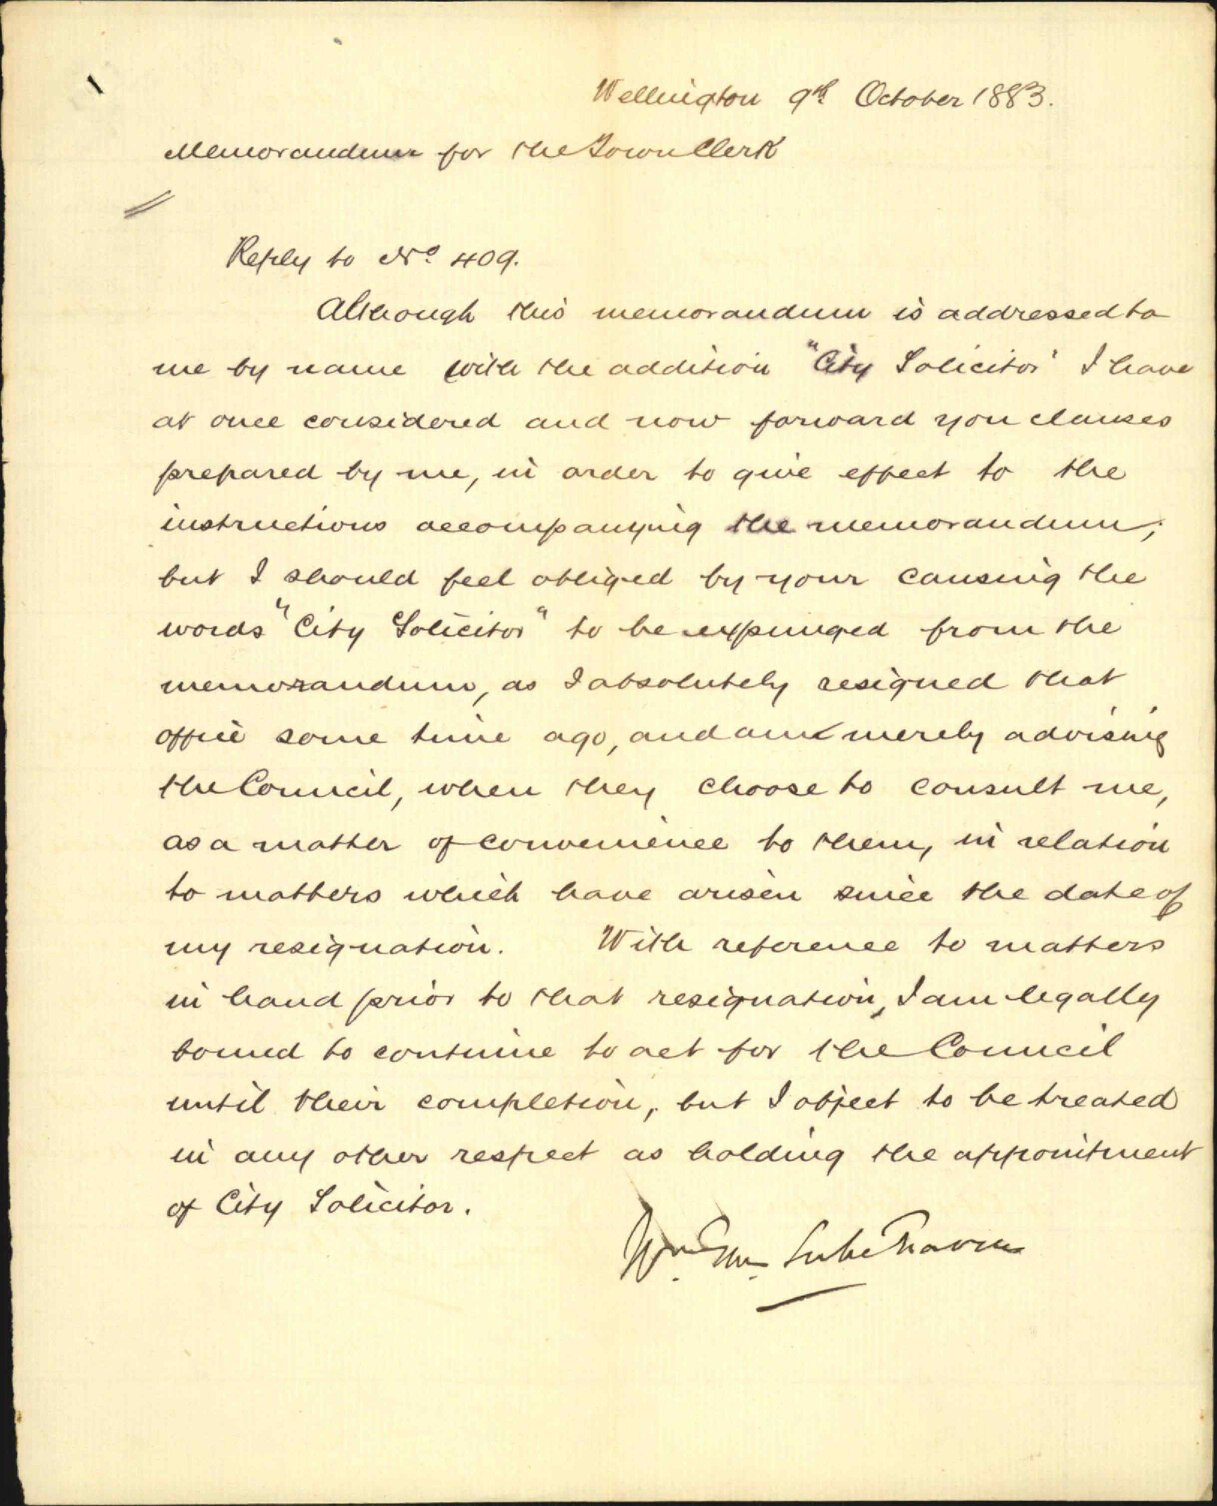 Wellington 9th October 1883.
Memorandum for the Town Clerk
Reply to No. 409.
Although this memorandum is addressed to
me by name with the addition "City Solicitor" I have
at once considered and now forward you clauses
prepared by me, in order to give effect to the
instructions accompanying the memorandum;
but I should feel obliged by your causing the
words "City Solicitor" to be expunged from the
memorandum, as I absolutely resigned that
office some time ago, and am merely advising
the Council, when they choose to consult me,
as a matter of convenience to them, in relation
to matters which have arisen since the date of
my resignation. With reference to matters
in hand prior to that resignation, I am legally
bound to continue to act for the Council
until their completion, but I object to be treated
in any other respect as holding the appointment
of City Solicitor.
Wm. Thos. Locke Travers